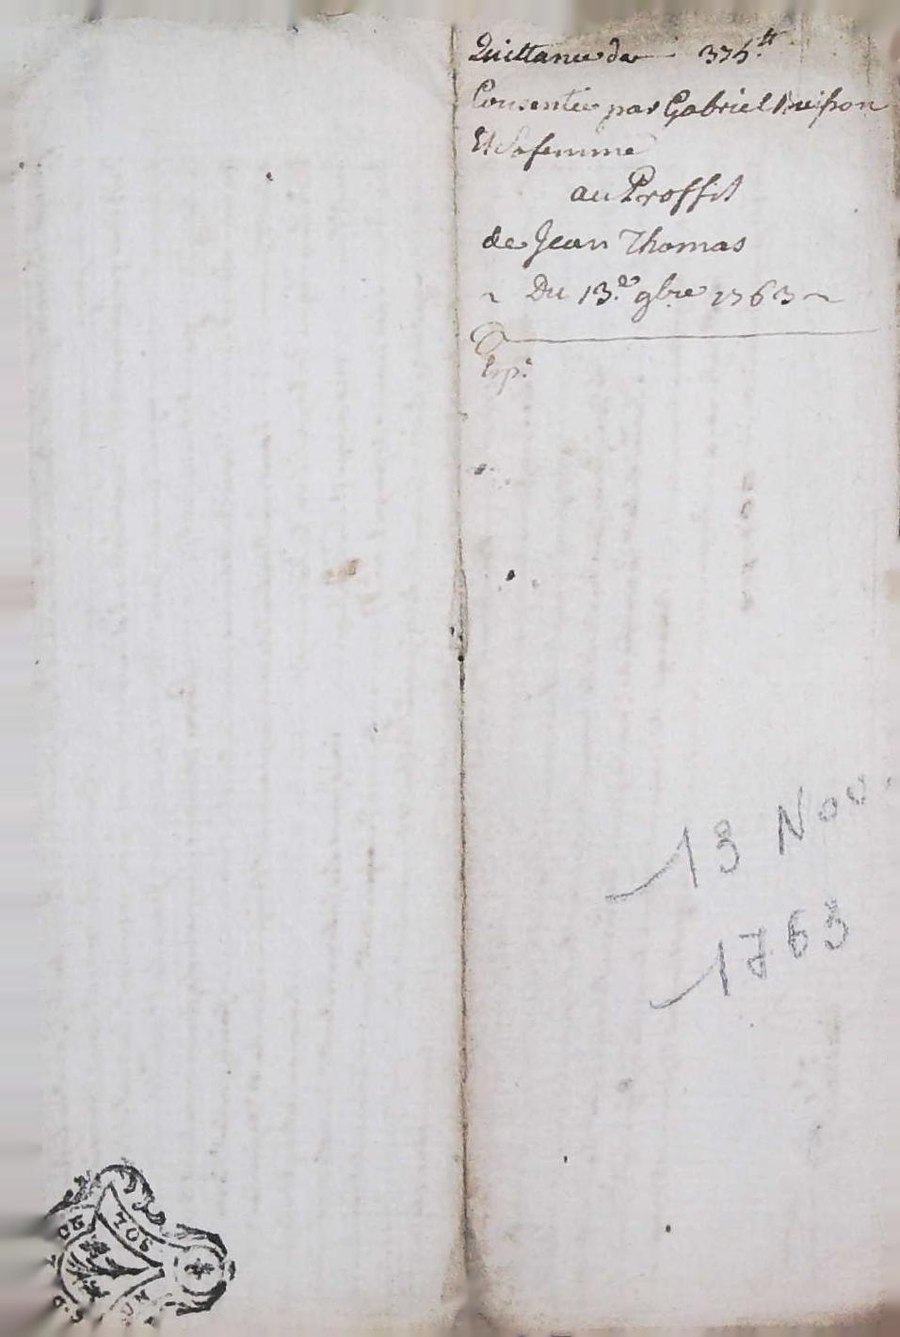 Quittance de 375.tt
Consentie par Gabriel
Et Sa femme
au Proffit
de Jean Thomas
~ Du 13.e 9bre 1763 ~
Exp.e
13 Nov.
1763
SOL